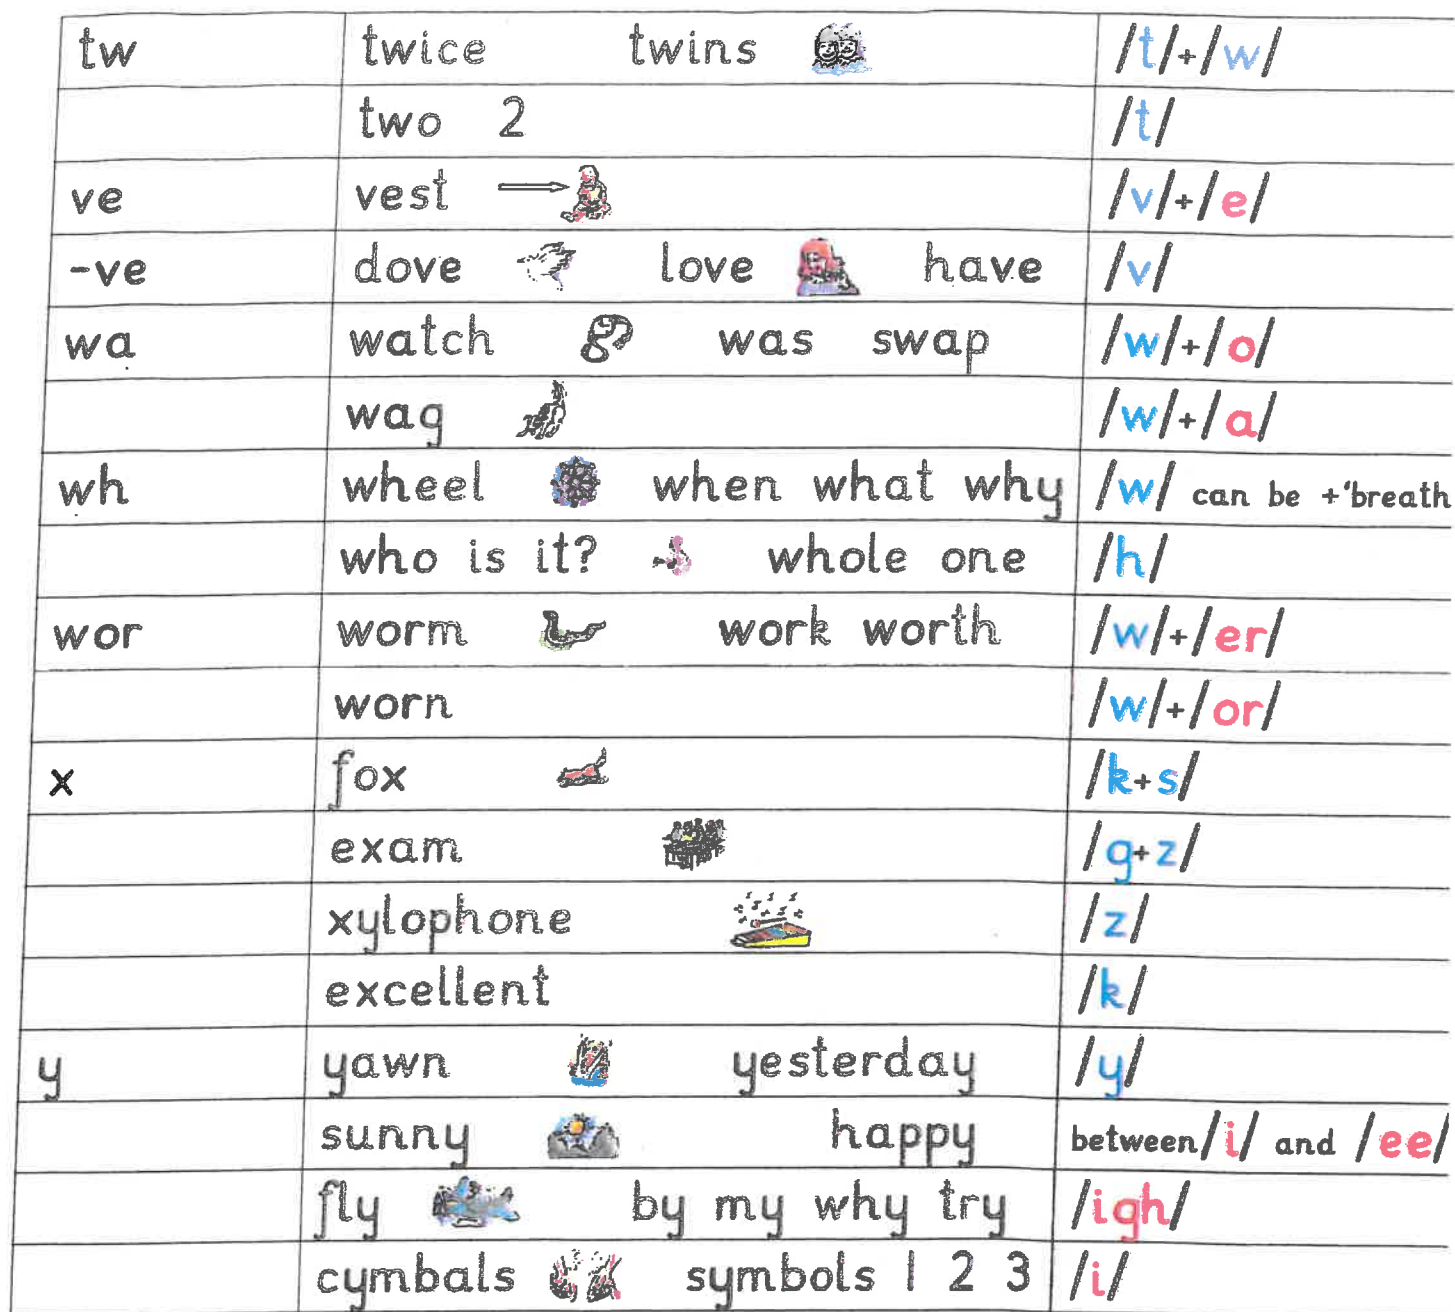 tw twice twins /t/+/w/
two 2 /t/
ve vest /v/+/e/
-ve dove love have /v/
wa watch was swap /w/+/o/
wag /w/+/a/
wh wheel when what why /w/ can be +'breath
who is it? whole one /h/
wor worm work worth /w/+/er/
worn /w/+/or/
x fox /k+s/
exam /g+z/
xylophone /z/
excellent /k/
y yawn yesterday /y/
sunny happy between /i/ and /ee/
fly by my why try /igh/
cymbals symbols 1 2 3 /i/